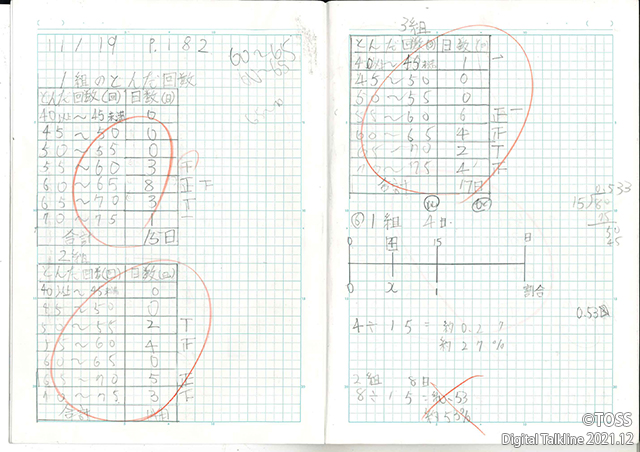 11/19 P.182
60〜65
60〜65
1組のとんだ回数
とんだ回数(回) 日数(日)
40以上〜45未満 0
45〜50 0
50〜55 0
55〜60 3 下
60〜65 8 正下
65〜70 3 下
70〜75 1 一
合計 15日
2組
とんだ回数(回) 日数(日)
40以上〜45未満 0
45〜50 0
50〜55 2 T
55〜60 4 正
60〜65 0
65〜70 5 正
70〜75 3 下
合計
3組
とんだ回数(回) 日数(日)
40以上〜45未満 1 一
45〜50 0
50〜55 0
55〜60 6 正一
60〜65 4 正
65〜70 2 T
70〜75 4 正
合計 17日
0.533
15 80
75
50
45
⑥1組 4日
0 4 15 日
0 x 1 割合
0.53
4÷15=約0.27
約27%
2組 8日
8÷15=約0.53
約53%
©TOSS
Digital Talkline 2021.12